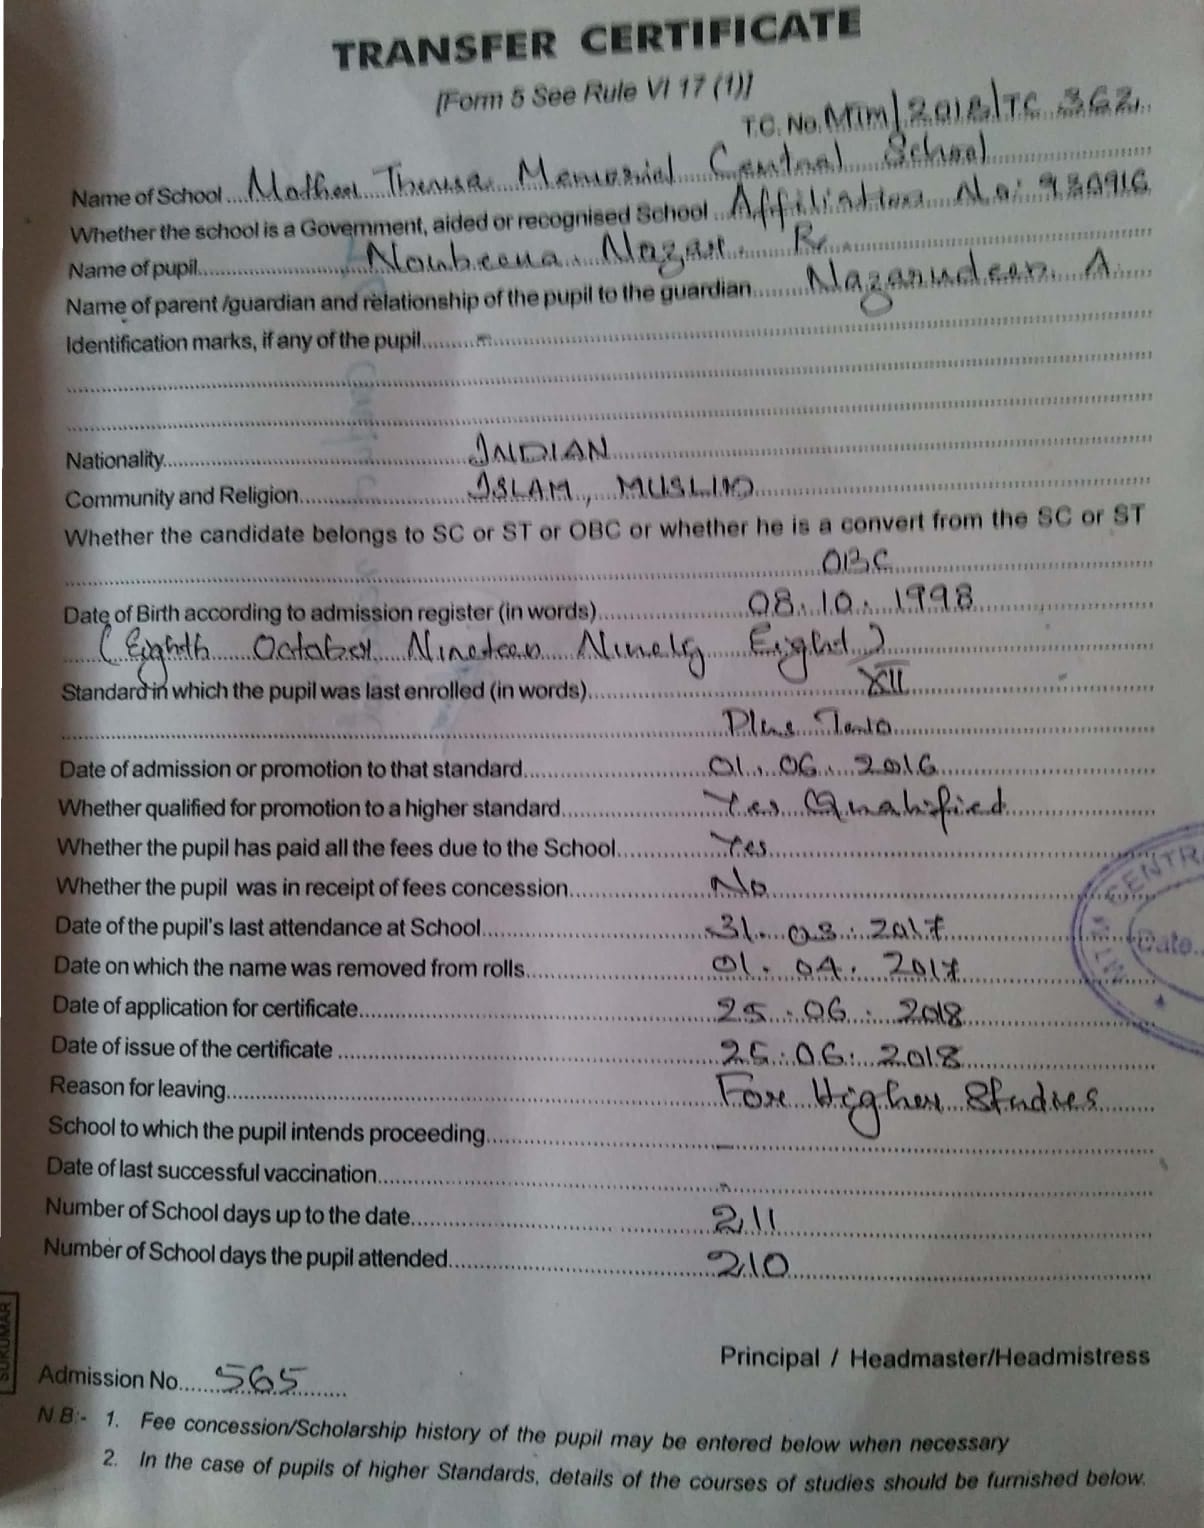 TRANSFER CERTIFICATE
[Form 5 See Rule VI 17 (1)]
T.C. No. MTM/2018/TC 362
Name of School Mother Theresa Memorial Central School
Whether the school is a Government, aided or recognised School Affiliation No: 930916
Name of pupil Noubeena Nazar R
Name of parent /guardian and relationship of the pupil to the guardian Nazarudeen A
Identification marks, if any of the pupil -
Nationality INDIAN
Community and Religion ISLAM, MUSLIM
Whether the candidate belongs to SC or ST or OBC or whether he is a convert from the SC or ST
OBC
Date of Birth according to admission register (in words) 08.10.1998
(Eighth October Nineteen Ninety Eight)
Standard in which the pupil was last enrolled (in words) XII
Plus Two
Date of admission or promotion to that standard 01.06.2016
Whether qualified for promotion to a higher standard Yes Qualified
Whether the pupil has paid all the fees due to the School Yes
Whether the pupil was in receipt of fees concession No
Date of the pupil's last attendance at School 31.03.2017
Date on which the name was removed from rolls 01.04.2017
Date of application for certificate 25.06.2018
Date of issue of the certificate 25.06.2018
Reason for leaving For Higher Studies
School to which the pupil intends proceeding -
Date of last successful vaccination -
Number of School days up to the date 211
Number of School days the pupil attended 210
CENTRA
MTM
Date
SUKUMAR
Principal / Headmaster/Headmistress
Admission No. 565
N.B:- 1. Fee concession/Scholarship history of the pupil may be entered below when necessary
2. In the case of pupils of higher Standards, details of the courses of studies should be furnished below.